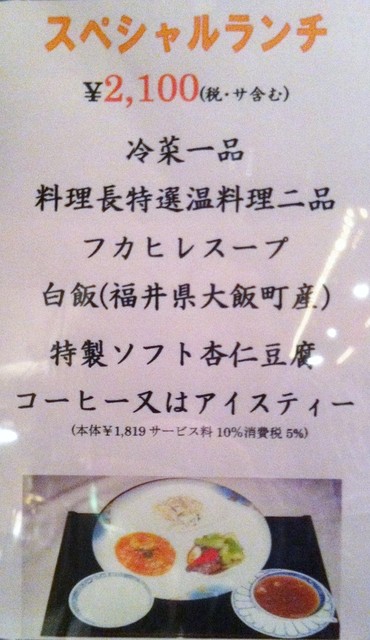 スペシャルランチ
¥2,100(税・サ含む)
冷菜一品
料理長特選温料理二品
フカヒレスープ
白飯(福井県大飯町産)
特製ソフト杏仁豆腐
コーヒー又はアイスティー
(本体¥1,819サービス料10%消費税5%)